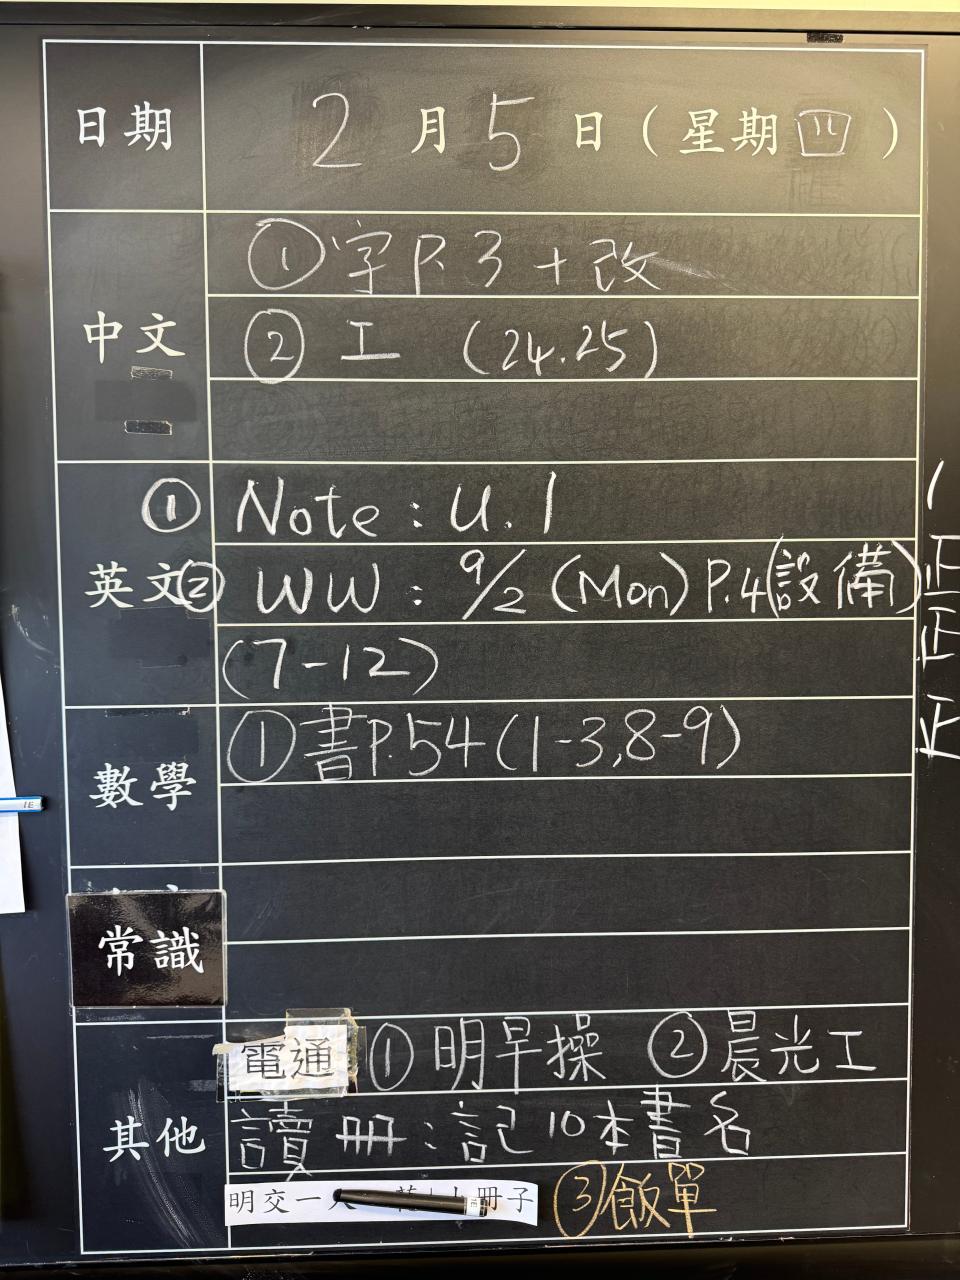 日期 2月5日(星期四)
中文
①字P.3+改
②工 (24.25)
英文
① Note : U.1
② WW : 9/2 (Mon) P.4(設備)
(7-12)
數學
①書P.54(1-3,8-9)
常識
其他
電通 ①明早操 ②晨光工
讀冊:記10本書名
明交一 冊子 ③飯單
正
正
正
1E